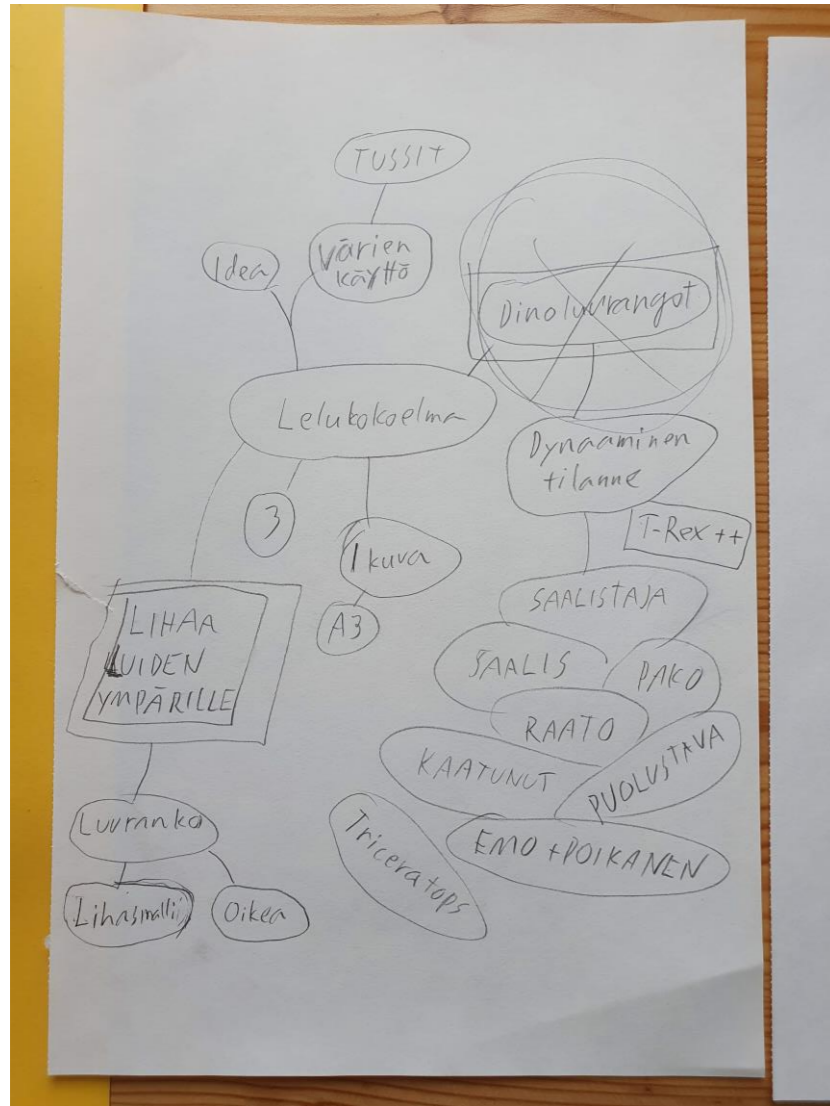 TUSSIT
Idea
Värien
käyttö
Dinoluurangot
Lelukokoelma
Dynaaminen
tilanne
T-Rex ++
3
1 kuva
A3
SAALISTAJA
LIHAA
LUIDEN
YMPÄRILLE
SAALIS
PAKO
RAATO
KAATUNUT
PUOLUSTAVA
EMO + POIKANEN
Triceratops
Luuranko
Lihasmalli
Oikea